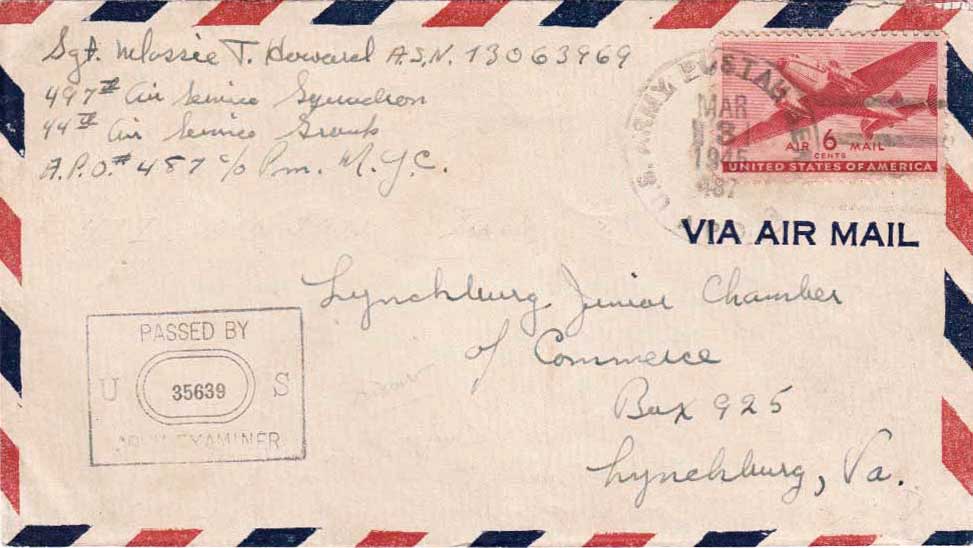 Sgt. Massie T. Howard A.S.N. 13063969
497th Air Service Squadron
44th Air Service Group
A.P.O.# 487 c/o Pm. N.Y.C.
U.S. ARMY POSTAL
MAR
1945
487
A.P.O.
AIR 6 MAIL
CENTS
UNITED STATES OF AMERICA
VIA AIR MAIL
Lynchburg Junior Chamber
of Commerce
Box 925
Lynchburg, Va.
PASSED BY
U 35639 S
ARMY EXAMINER